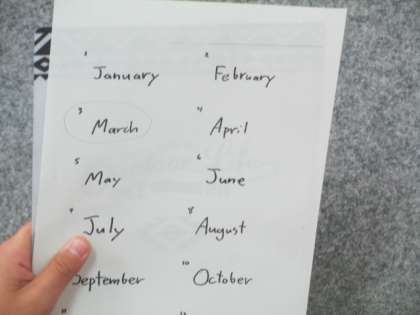 1 January 2 February
3 March 4 April
5 May 6 June
7 July 8 August
September 10 October